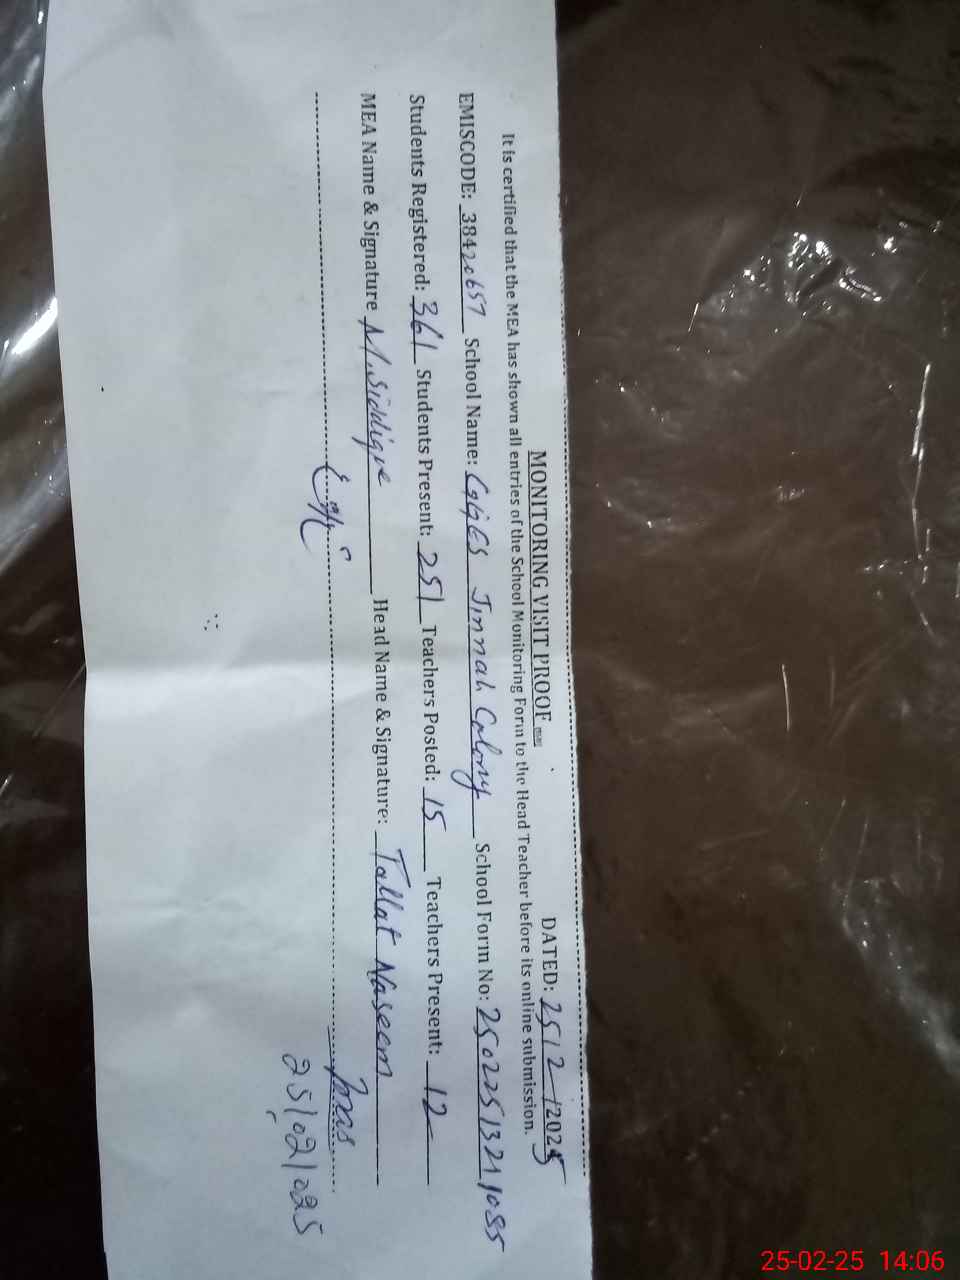 MONITORING VISIT PROOF
DATED: 25/2/2025
It is certified that the MEA has shown all entries of the School Monitoring Form to the Head Teacher before its online submission.
EMISCODE: 38420657 School Name: GGES Jinnah Colony School Form No: 25022513211085
Students Registered: 361 Students Present: 251 Teachers Posted: 15 Teachers Present: 12
MEA Name & Signature M.Siddique Head Name & Signature: Tallat Naseem
25/02/025
25-02-25 14:06